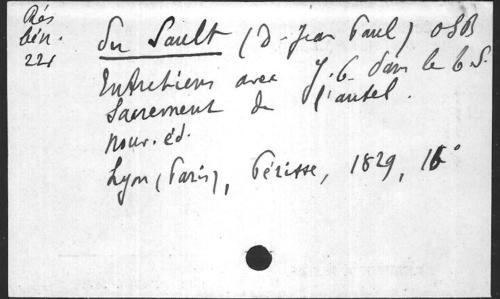 Rés
bén.
221
du Sault (D. Jean Paul) OSB
Entretiens avec J.C. dans le t. S.
Sacrement de l'autel.
Nouv. éd.
Lyon (Paris), Périsse, 1829, 16°